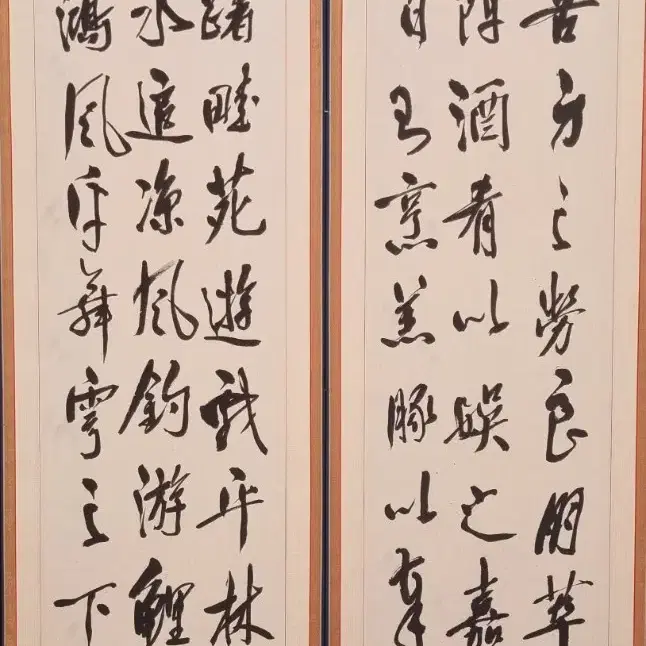 苦身之勞良朋萃
陳酒肴以娛之嘉
日則烹羔豚以奉
躇畦苑遊戲平林
水追涼風釣游鯉
鴻風乎舞雩之下